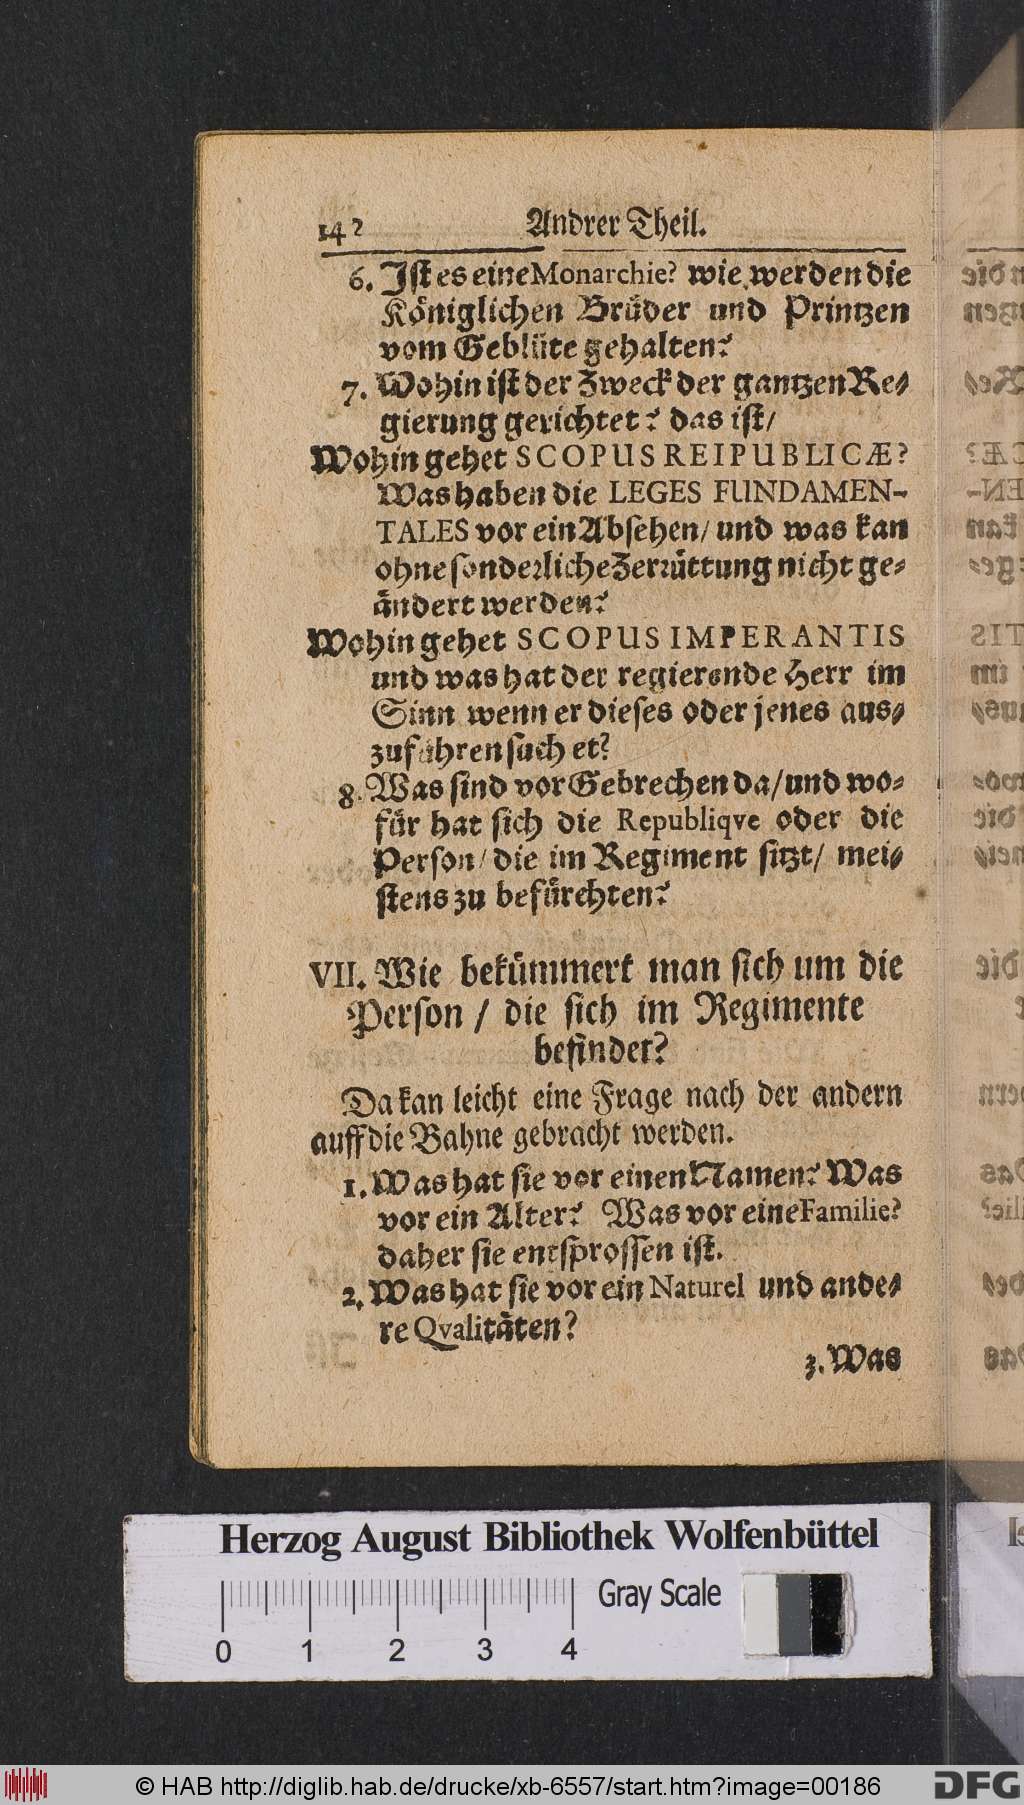 142 Andrer Theil.
6. Iſt es eine Monarchie? wie werden die
Königlichen Brüder und Printzen
vom Geblüte gehalten?
7. Wohin iſt der Zweck der gantzen Re-
gierung gerichtet? das iſt/
Wohin gehet SCOPUS REIPUBLICÆ?
Was haben die LEGES FUNDAMEN-
TALES vor ein Abſehen/ und was kan
ohne ſonderliche Zerrüttung nicht ge-
ändert werden?
Wohin gehet SCOPUS IMPERANTIS
und was hat der regierende Herr im
Sinn wenn er dieſes oder jenes aus-
zuführen ſuchet?
8. Was ſind vor Gebrechen da/ und wo-
für hat ſich die Republiqve oder die
Perſon/ die im Regiment ſitzt/ mei-
ſtens zu befürchten?
VII. Wie bekümmert man ſich um die
Perſon / die ſich im Regimente
befindet?
Da kan leicht eine Frage nach der andern
auff die Bahne gebracht werden.
1. Was hat ſie vor einen Namen? Was
vor ein Alter? Was vor eine Familie?
daher ſie entſproſſen iſt.
2. Was hat ſie vor ein Naturel und ande-
re Qvalitäten?
3. Was
Herzog August Bibliothek Wolfenbüttel
Gray Scale
0 1 2 3 4
© HAB http://diglib.hab.de/drucke/xb-6557/start.htm?image=00186
DFG